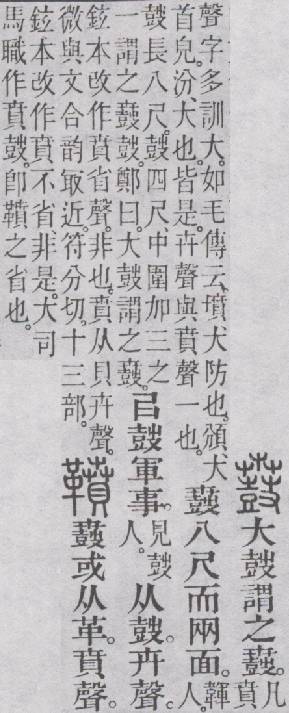 鼖大鼓謂之鼖。凡賁
聲字多訓大。如毛傳云。墳大防也。頒大
首皃。汾大也。皆是。卉聲與賁聲一也。
鼖八尺而兩面。韗人。
鼓長八尺。鼓四尺。中圍加三之
一。謂之鼖鼓。鄭曰。大鼓謂之鼖。
㠯鼓軍事。見鼓人。从鼓。卉聲。
鉉本改作賁省聲。非也。賁从貝卉聲。
微與文合韵冣近。符分切。十三部。
鼖或从革。賁聲。
鉉本改作賁不省。非是。大司
馬職作賁鼓。卽之省也。